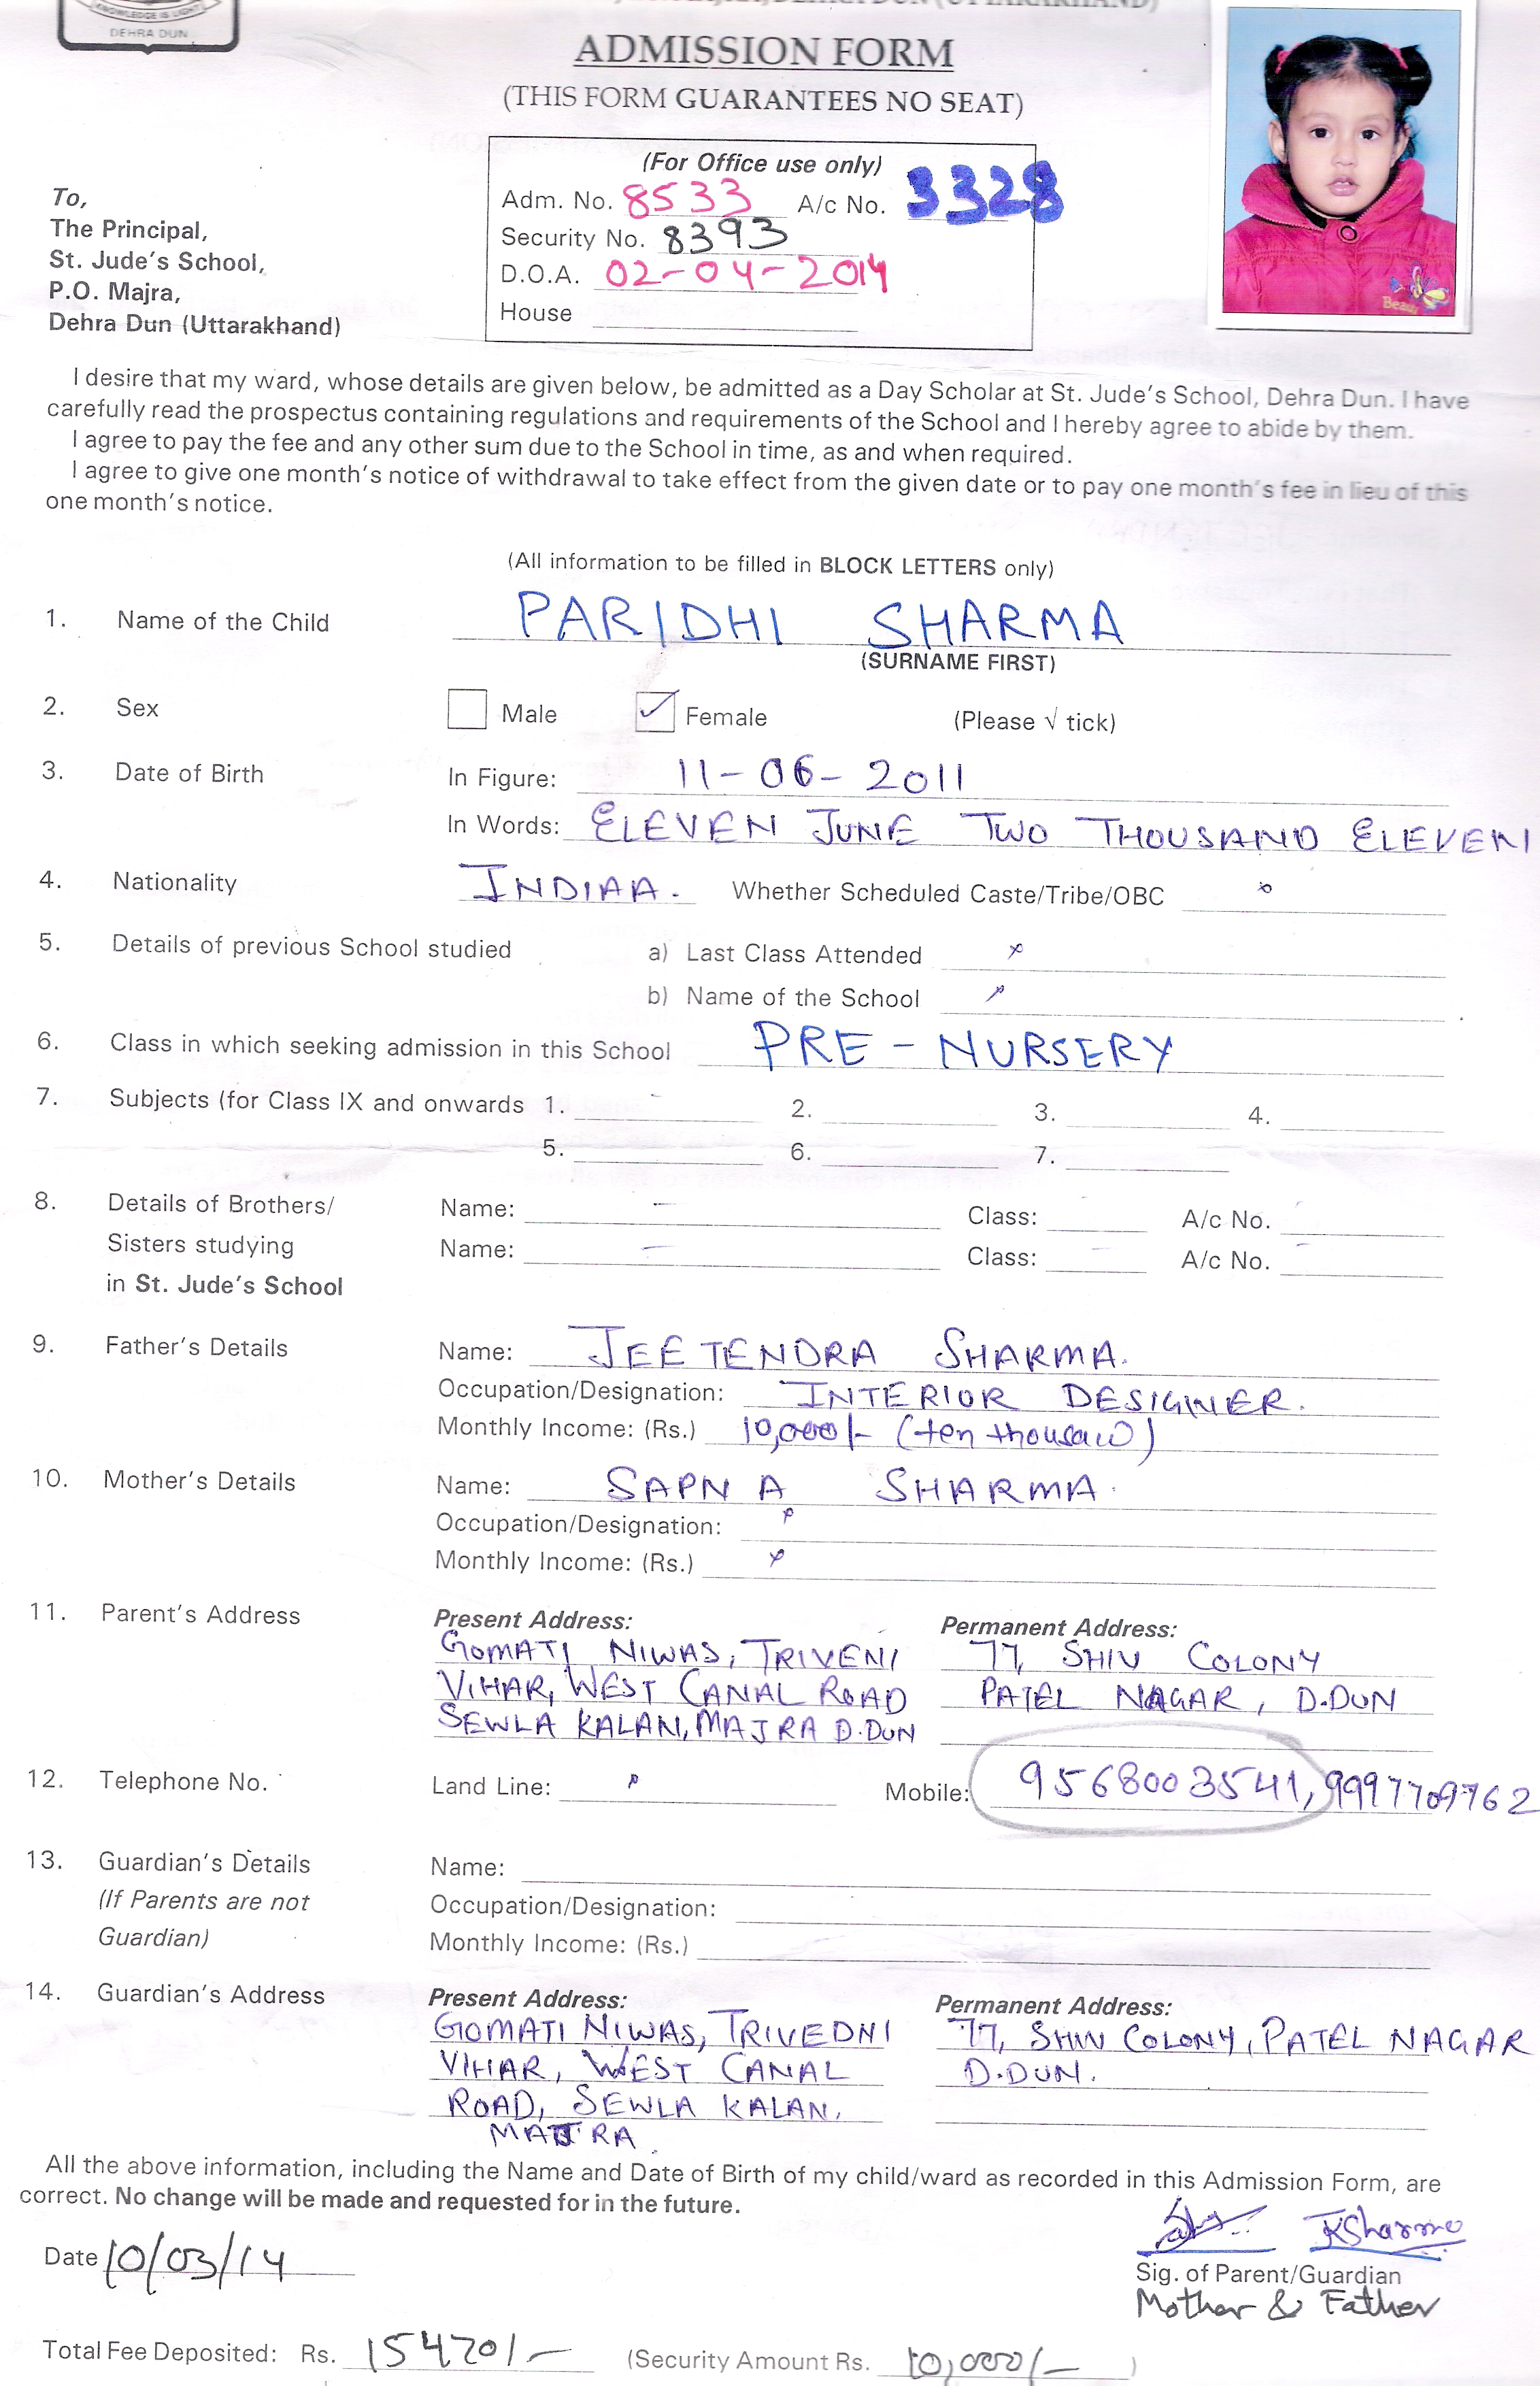 KNOWLEDGE IS LIGHT
DEHRA DUN
ADMISSION FORM
(THIS FORM GUARANTEES NO SEAT)
(For Office use only)
Adm. No. 8533 A/c No. 3328
Security No. 8393
D.O.A. 02-04-2014
House
To,
The Principal,
St. Jude's School,
P.O. Majra,
Dehra Dun (Uttarakhand)
I desire that my ward, whose details are given below, be admitted as a Day Scholar at St. Jude's School, Dehra Dun. I have
carefully read the prospectus containing regulations and requirements of the School and I hereby agree to abide by them.
I agree to pay the fee and any other sum due to the School in time, as and when required.
I agree to give one month's notice of withdrawal to take effect from the given date or to pay one month's fee in lieu of this
one month's notice.
(All information to be filled in BLOCK LETTERS only)
1. Name of the Child PARIDHI SHARMA
(SURNAME FIRST)
2. Sex Male Female (Please √ tick)
3. Date of Birth In Figure: 11-06-2011
In Words: ELEVEN JUNE TWO THOUSAND ELEVEN
4. Nationality INDIAA. Whether Scheduled Caste/Tribe/OBC
5. Details of previous School studied a) Last Class Attended
b) Name of the School
6. Class in which seeking admission in this School PRE-NURSERY
7. Subjects (for Class IX and onwards 1. 2. 3. 4.
5. 6. 7.
8. Details of Brothers/ Name: — Class: A/c No.
Sisters studying Name: — Class: — A/c No. —
in St. Jude's School
9. Father's Details Name: JEETENDRA SHARMA.
Occupation/Designation: INTERIOR DESIGNER.
Monthly Income: (Rs.) 10,000/- (ten thousand)
10. Mother's Details Name: SAPNA SHARMA.
Occupation/Designation:
Monthly Income: (Rs.)
11. Parent's Address Present Address: Permanent Address:
GOMATI NIWAS, TRIVENI 77, SHIV COLONY
VIHAR, WEST CANAL ROAD PATEL NAGAR, D.DUN
SEWLA KALAN, MAJRA D.DUN
12. Telephone No. Land Line: Mobile: 9568003541, 9997709762
13. Guardian's Details Name:
(If Parents are not Occupation/Designation:
Guardian) Monthly Income: (Rs.)
14. Guardian's Address Present Address: Permanent Address:
GOMATI NIWAS, TRIVEDNI 77, SHIV COLONY, PATEL NAGAR
VIHAR, WEST CANAL D.DUN.
ROAD, SEWLA KALAN,
MAJRA.
All the above information, including the Name and Date of Birth of my child/ward as recorded in this Admission Form, are
correct. No change will be made and requested for in the future.
JKSharma
Date 10/03/14
Sig. of Parent/Guardian
Mother & Father
Total Fee Deposited: Rs. 15470/- (Security Amount Rs. 10,000/- )